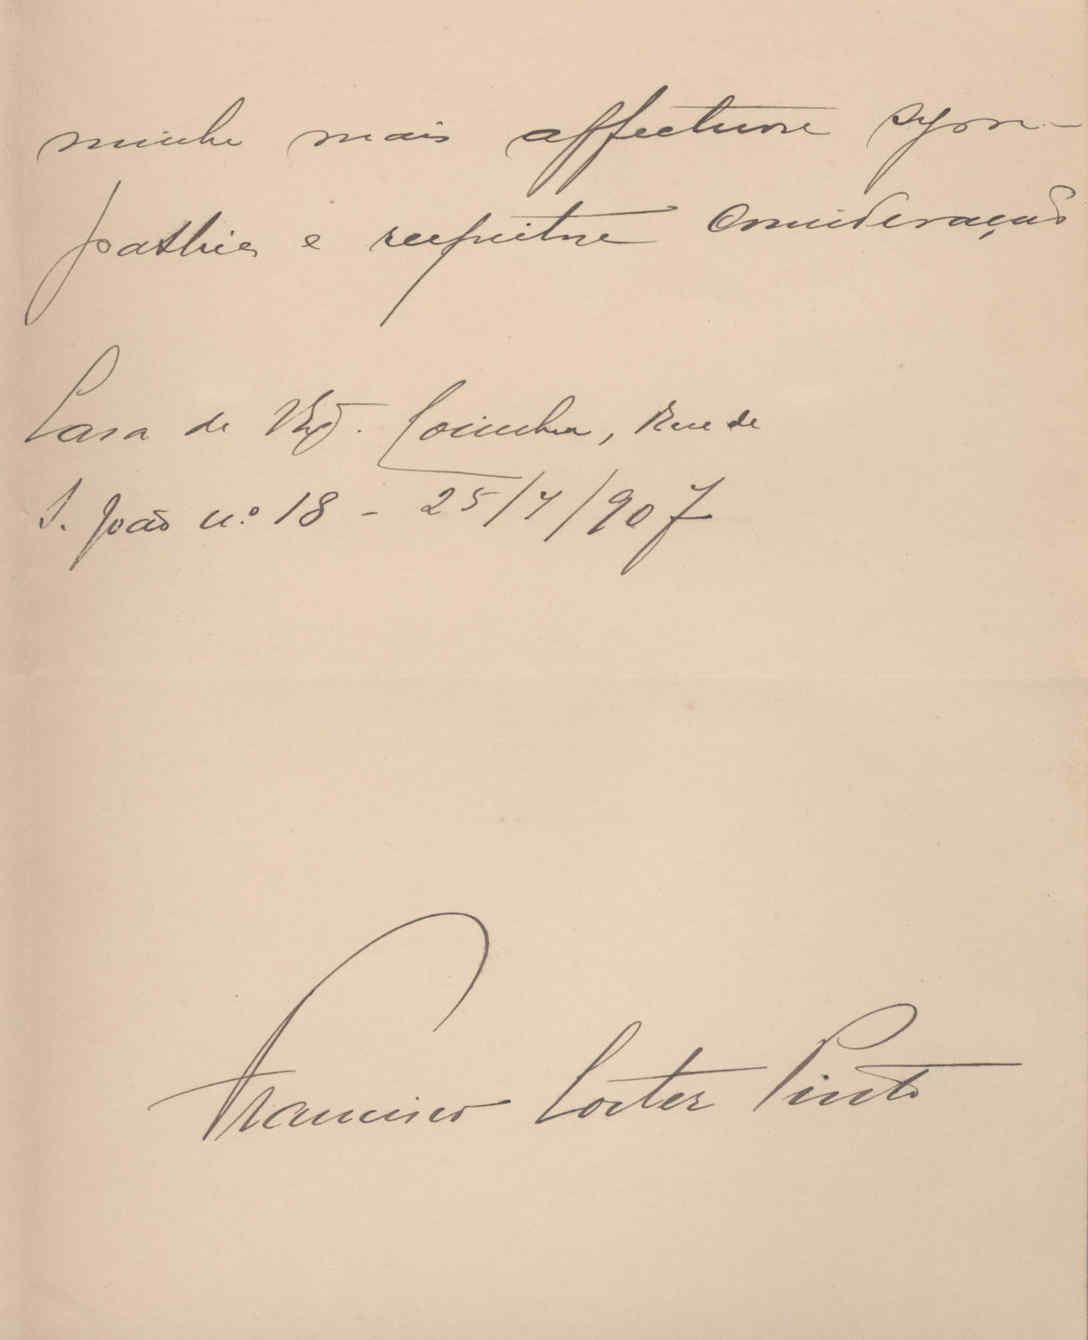 minha mais affectuosa sym-
pathia e respeitosa consideração
Casa de V. Exª. Coimbra, Rua de
S. João n.º 18 - 25/4/907
Francisco Cortez Pinto